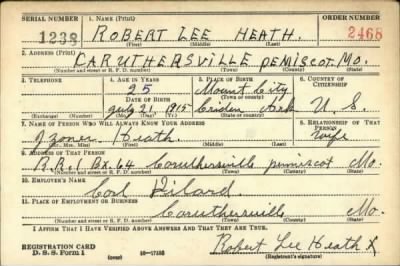 SERIAL NUMBER 1. NAME (Print) ORDER NUMBER
1238 ROBERT LEE HEATH. 2468
(First) (Middle) (Last)
2. ADDRESS (Print)
CARUTHERSVILLE pemiscot Mo.
(Number and street or R. F. D. number) (Town) (County) (State)
3. TELEPHONE 4. AGE IN YEARS 5. PLACE OF BIRTH 6. COUNTRY OF CITIZENSHIP
25 Mount City
DATE OF BIRTH (Town or county)
July 21, 1915 Ark U. S.
(Exchange) (Number) (Mo.) (Day) (Yr.) (State or country)
7. NAME OF PERSON WHO WILL ALWAYS KNOW YOUR ADDRESS 8. RELATIONSHIP OF THAT PERSON
Heath Wife
(Mr., Mrs., Miss) (First) (Middle) (Last)
9. ADDRESS OF THAT PERSON
R.R. 1 Bx. 64 Caruthersville pemiscot Mo.
(Number and street or R. F. D. number) (Town) (County) (State)
10. EMPLOYER'S NAME
Carl
11. PLACE OF EMPLOYMENT OR BUSINESS
Caruthersville Mo.
(Number and street or R. F. D. number) (Town) (County) (State)
I AFFIRM THAT I HAVE VERIFIED ABOVE ANSWERS AND THAT THEY ARE TRUE.
REGISTRATION CARD
D. S. S. Form 1 (over) 16—17105 Robert Lee Heath X
(Registrant's signature)